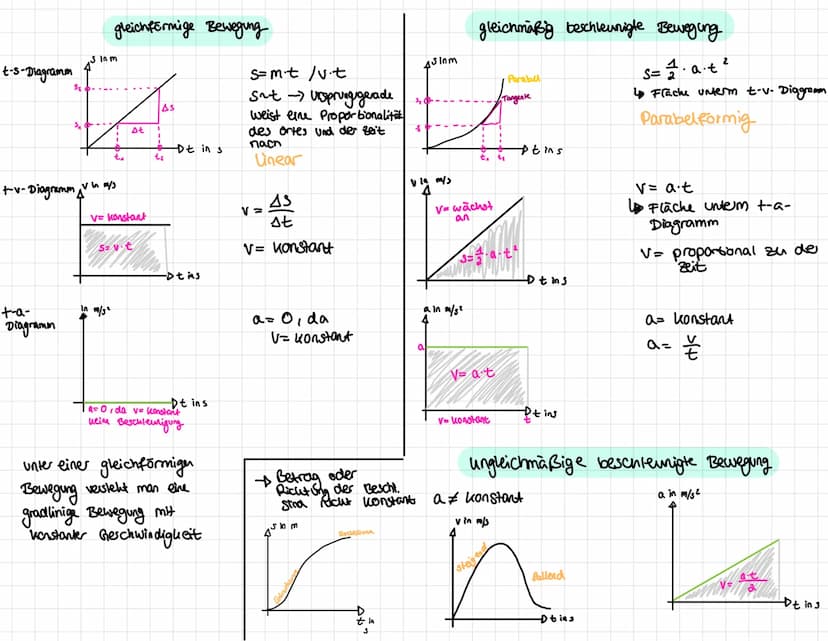 gleichförmige Bewegung
t-s-Diagramm
s in m
s₂
s₁
Δs
Δt
t₁
t₂
t in s
s=m·t /v·t
s~t → Ursprungsgerade
weist eine Proportionalität
des Ortes und der Zeit
nach
Linear
t-v-Diagramm
v in m/s
v= konstant
s=v·t
t in s
v = Δs/Δt
v= konstant
t-a-
Diagramm
in m/s²
t in s
a=0, da v= konstant
keine Beschleunigung
a=0, da
v= konstant
unter einer gleichförmigen
Bewegung versteht man eine
gradlinige Bewegung mit
konstanter Geschwindigkeit
gleichmäßig beschleunigte Bewegung
s in m
Parabel
Tangente
t₁
t in s
s= 1/2 · a·t²
↳ Fläche unterm t-v-Diagramm
Parabelförmig
v in m/s
v= wächst
an
s=1/2·a·t²
t in s
v= a·t
↳ Fläche unterm t-a-
Diagramm
v= proportional zu der
Zeit
a in m/s²
a
v=a·t
t in s
v= konstant
t
a= konstant
a= v/t
ungleichmäßige beschleunigte Bewegung
→ Betrag oder
Richtung der Beschl.
sind nicht konstant
a ≠ konstant
s in m
t in
s
v in m/s
steigend
fallend
t in s
a in m/s²
v= a·t/2
t in s